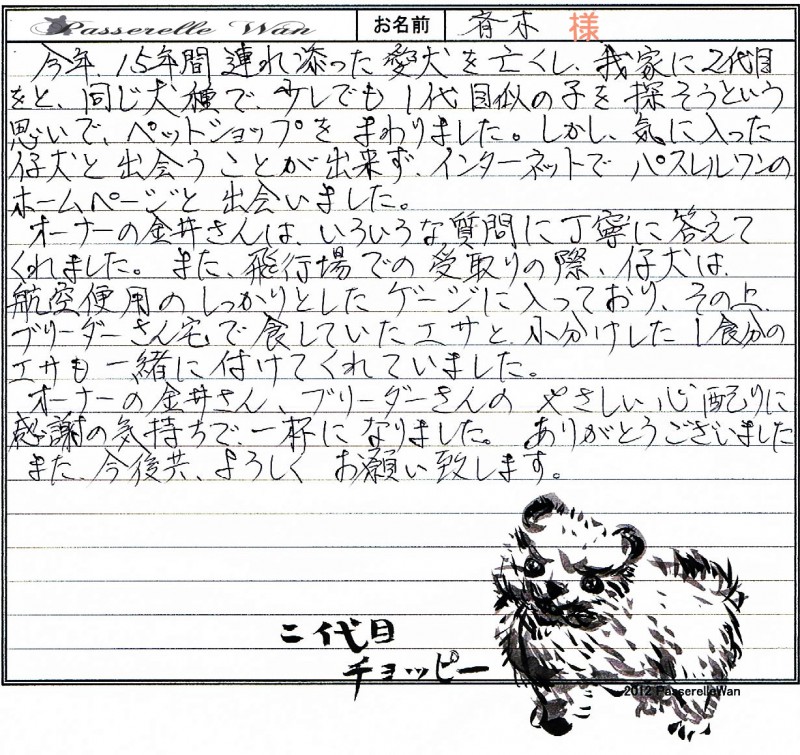 Passerelle Wan お名前 斉木 様
今年、15年間連れ添った愛犬を亡くし、我家に2代目
をと、同じ犬種で、少しでも1代目似の子を探そうという
思いで、ペットショップをまわりました。しかし、気に入った
仔犬と出会うことが出来ず、インターネットでパスレルワンの
ホームページと出会いました。
オーナーの金井さんは、いろいろな質問に丁寧に答えて
くれました。また、飛行場での受取りの際、仔犬は、
航空便用のしっかりとしたゲージに入っており、その上
ブリーダーさん宅で食していたエサと、小分けした1食分の
エサも一緒に付けてくれていました。
オーナーの金井さん、ブリーダーさんのやさしい心配りに
感謝の気持ちで、一杯になりました。ありがとうございました
また、今後共、よろしくお願い致します。
二代目
チョッピー
2012 PasserelleWan